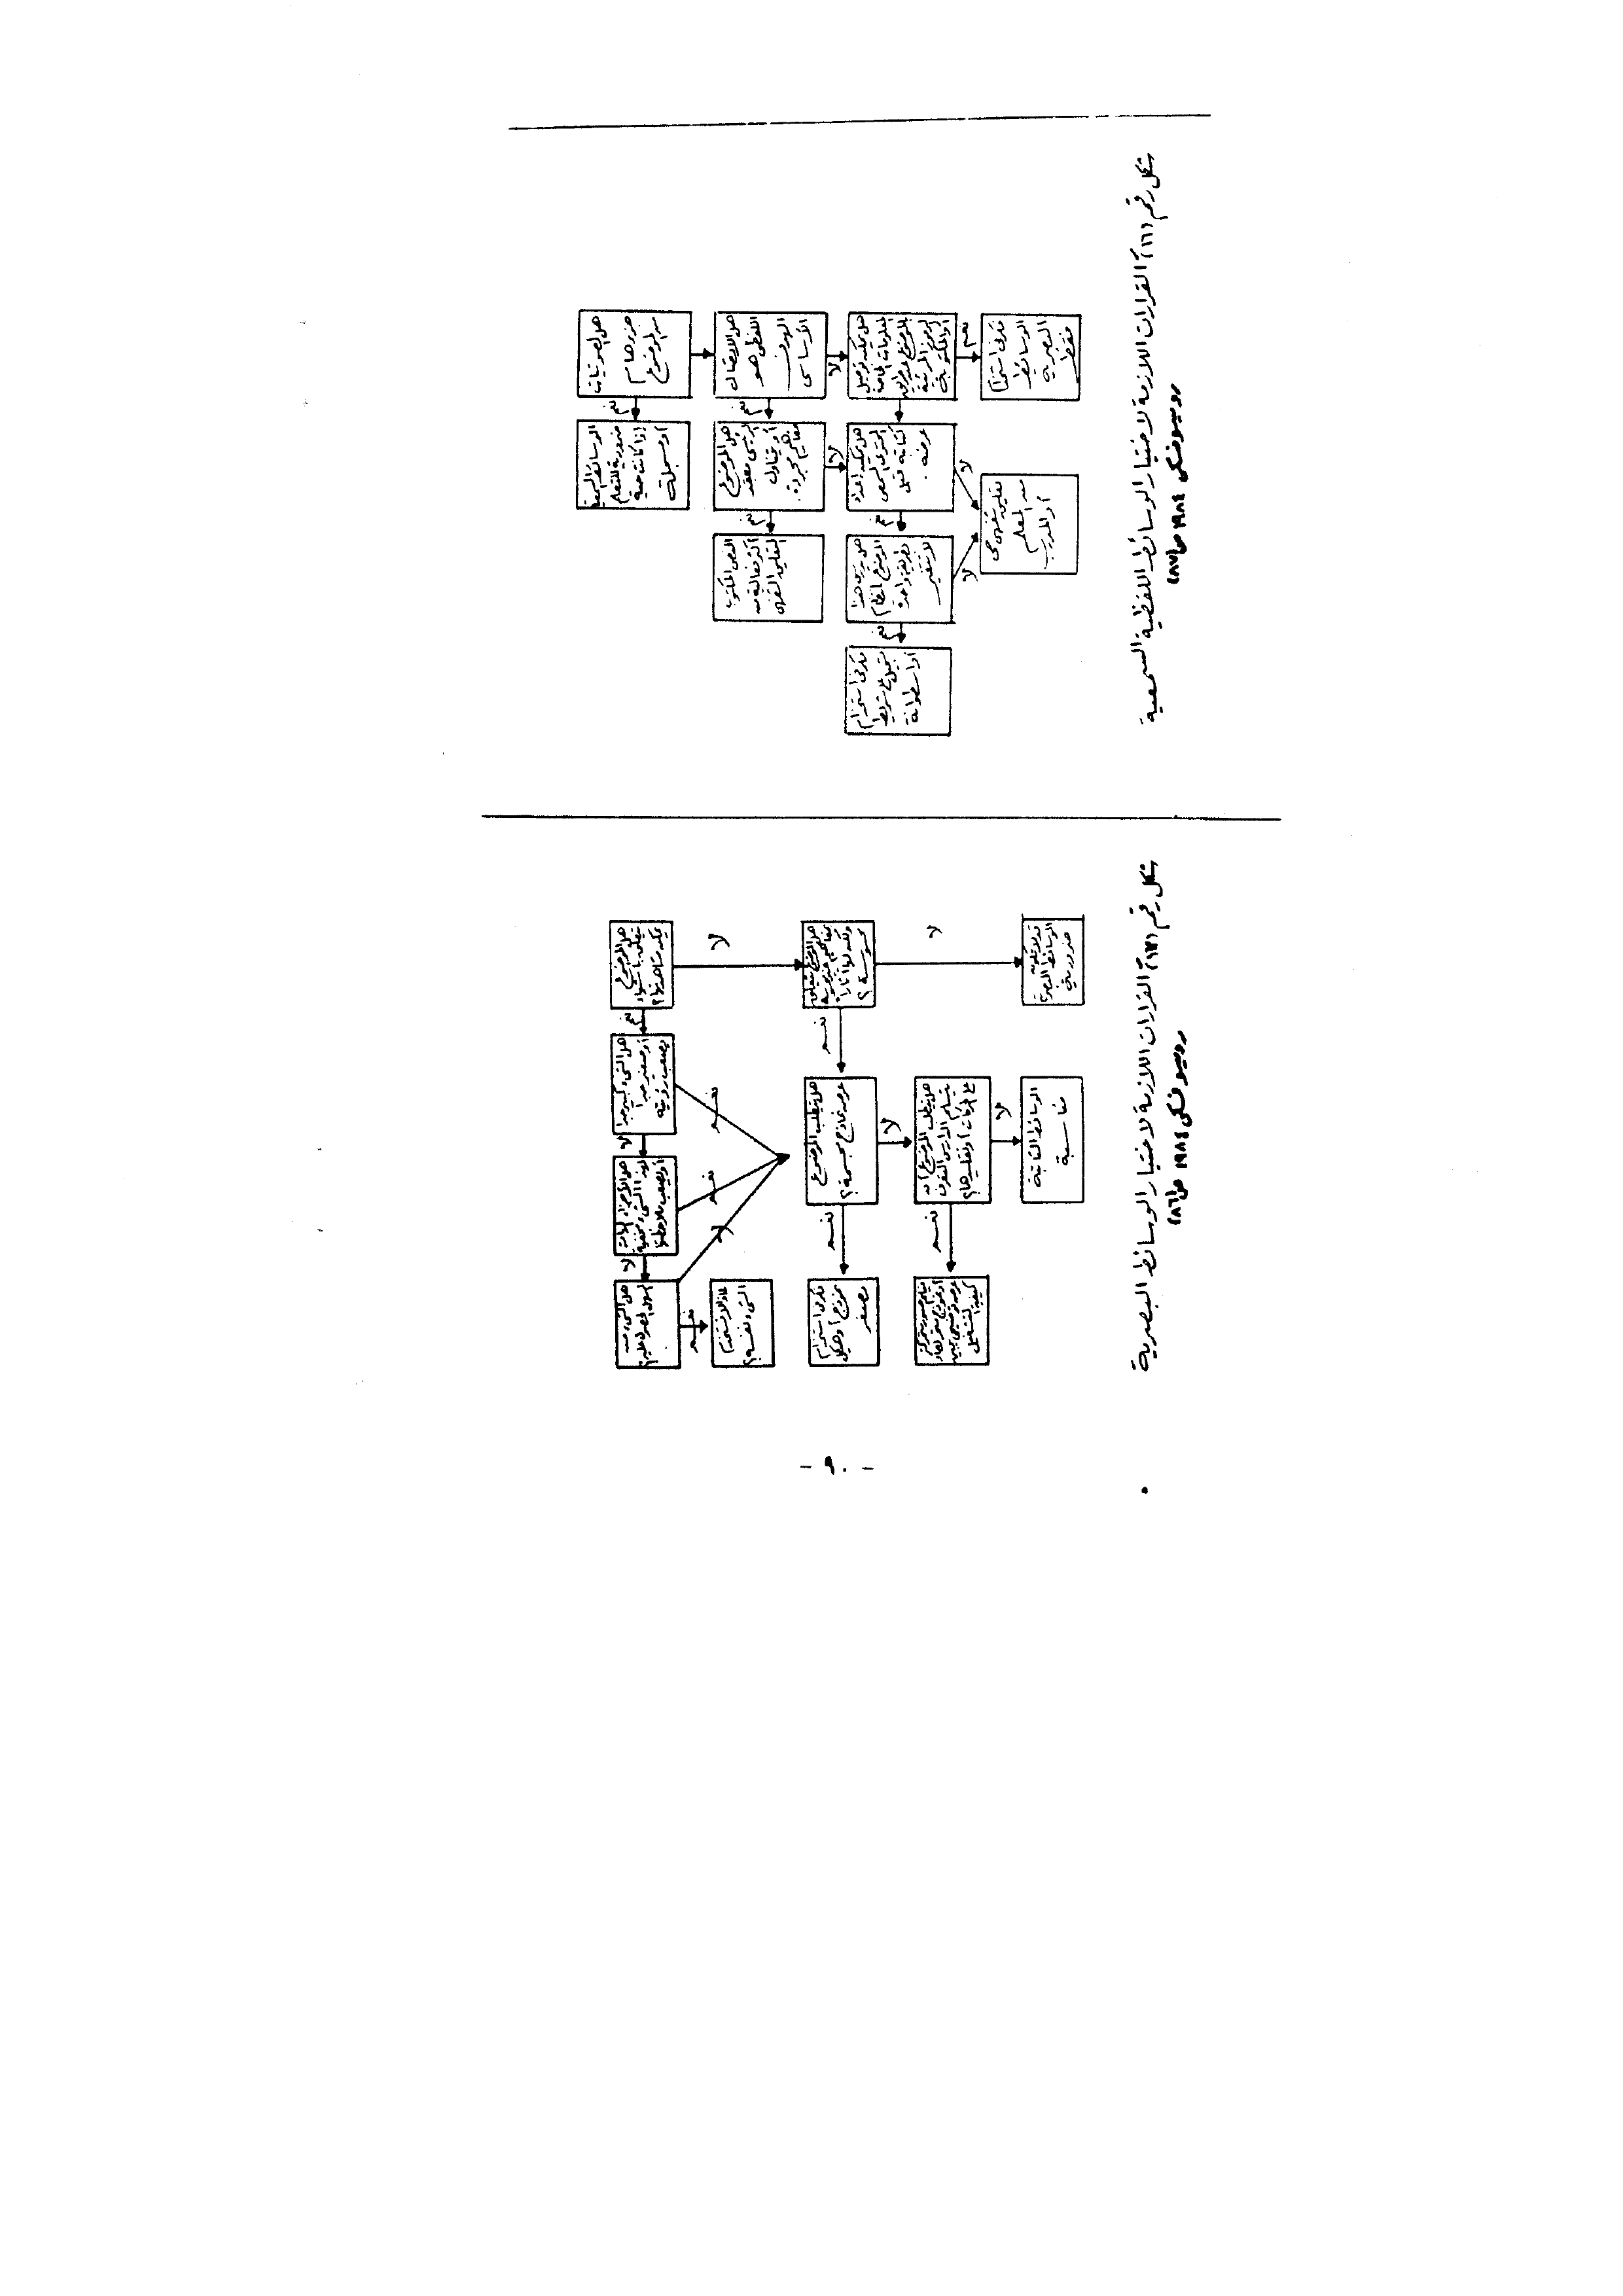 هل الصوتيات
جزء هام
من الموضوع
نعم
الوسائط السمعية
ضرورية للتعلم
إذا كانت حية
أو مسجلة
هل الاتصال
اللفظى هو
الهدف
الأساسى
لا
نعم
هل الموضوع
دراسى معقد
أو يتناول
مفاهيم مجردة
لا
نعم
النص المكتوب
أكثر فعالية من
التعليق الشفهى
هل يمكن توصيل
المعلومات الخاصة
بالموضوع عن طريق
الرموز المرئية
أو المكتوبة
نعم
هل يمكن إعداد
المحتوى السمعى
كتابة قبل
عرضه
لا
نعم
هل يدرس هذا
الموضوع بانتظام
بطريقة واحدة
لا تتغير
لا
نعم
فكر فى استخدام
تسجيل على شريط
أو اسطوانة
فكر فى استخدام
الوسائط
البصرية
فقط
تعليق شفهى حى
من المعلم
أو المدرب
شكل رقم (١٦) القرارات اللازمة لاختيار الوسائط اللفظية السمعية
روميسوفسكى ١٩٨٤ ص (٨٧)
هل الموضوع
يتعلق بأشياء
يمكن مشاهدتها؟
لا
نعم
هل الشىء كبير جداً
أو صغير جداً
يصعب رؤيته
نعم
لا
هل الأجزاء
لهذا الشىء مخفية
أو يصعب ملاحظتها
نعم
لا
هل الشىء من
السهل الحصول عليه؟
لا
نعم
لماذا لا تستخدم
الشىء نفسه؟
هل الموضوع يتعلق
بمفاهيم
ولكن لها آثار
محسوسة؟
لا
نعم
هل يتطلب الموضوع
عرض نماذج مجسمة؟
لا
نعم
فكر فى استخدام
نموذج أو هيكل
مصغر
هل يتطلب الموضوع أن
يتعلم الدارس التعرف
على الحركات أو تقليدها؟
لا
نعم
كيفية التشغيل
قد لا تكون
الوسائط البصرية
ضرورية
الوسائط الثابتة
مناسبة
شكل رقم (١٧) القرارات اللازمة لاختيار الوسائط البصرية
روميسوفسكى ١٩٨٤ ص (٨٦)
- ٩٠ -